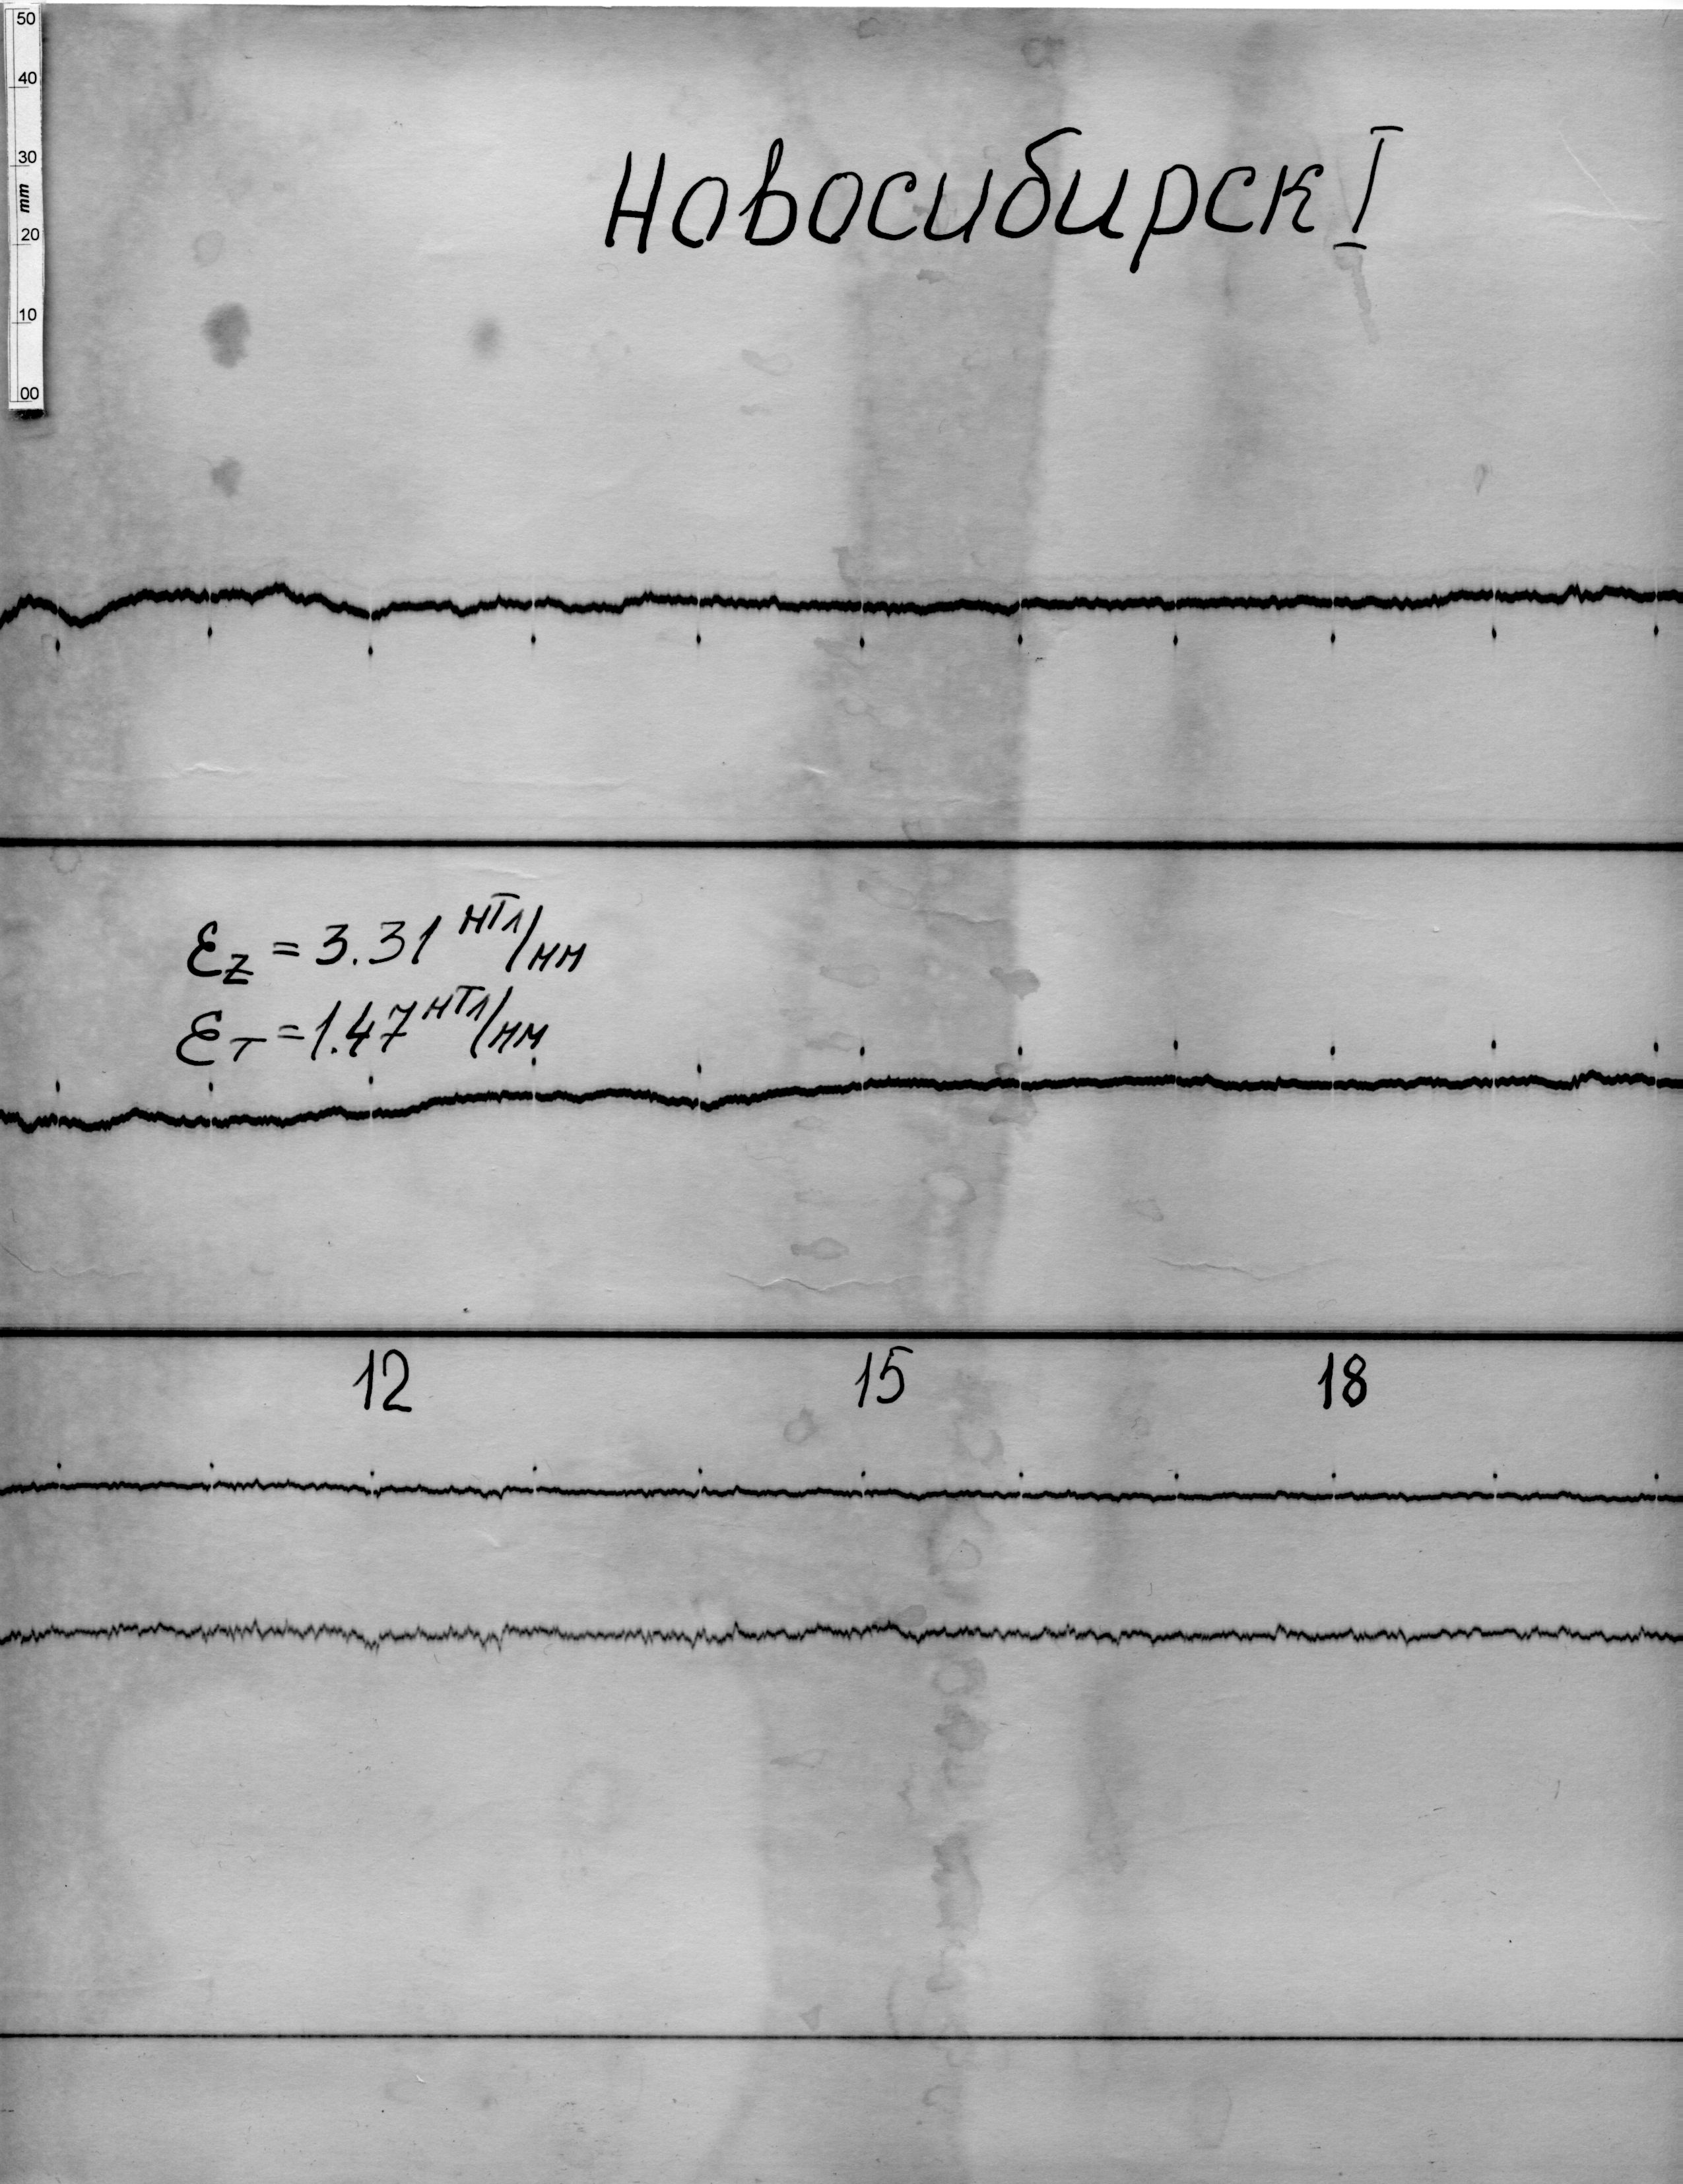 50
40
30
mm
20
10
00
Новосибирск I
Ɛz = 3.31 нТл/мм
Ɛт = 1.47 нТл/мм
12 15 18